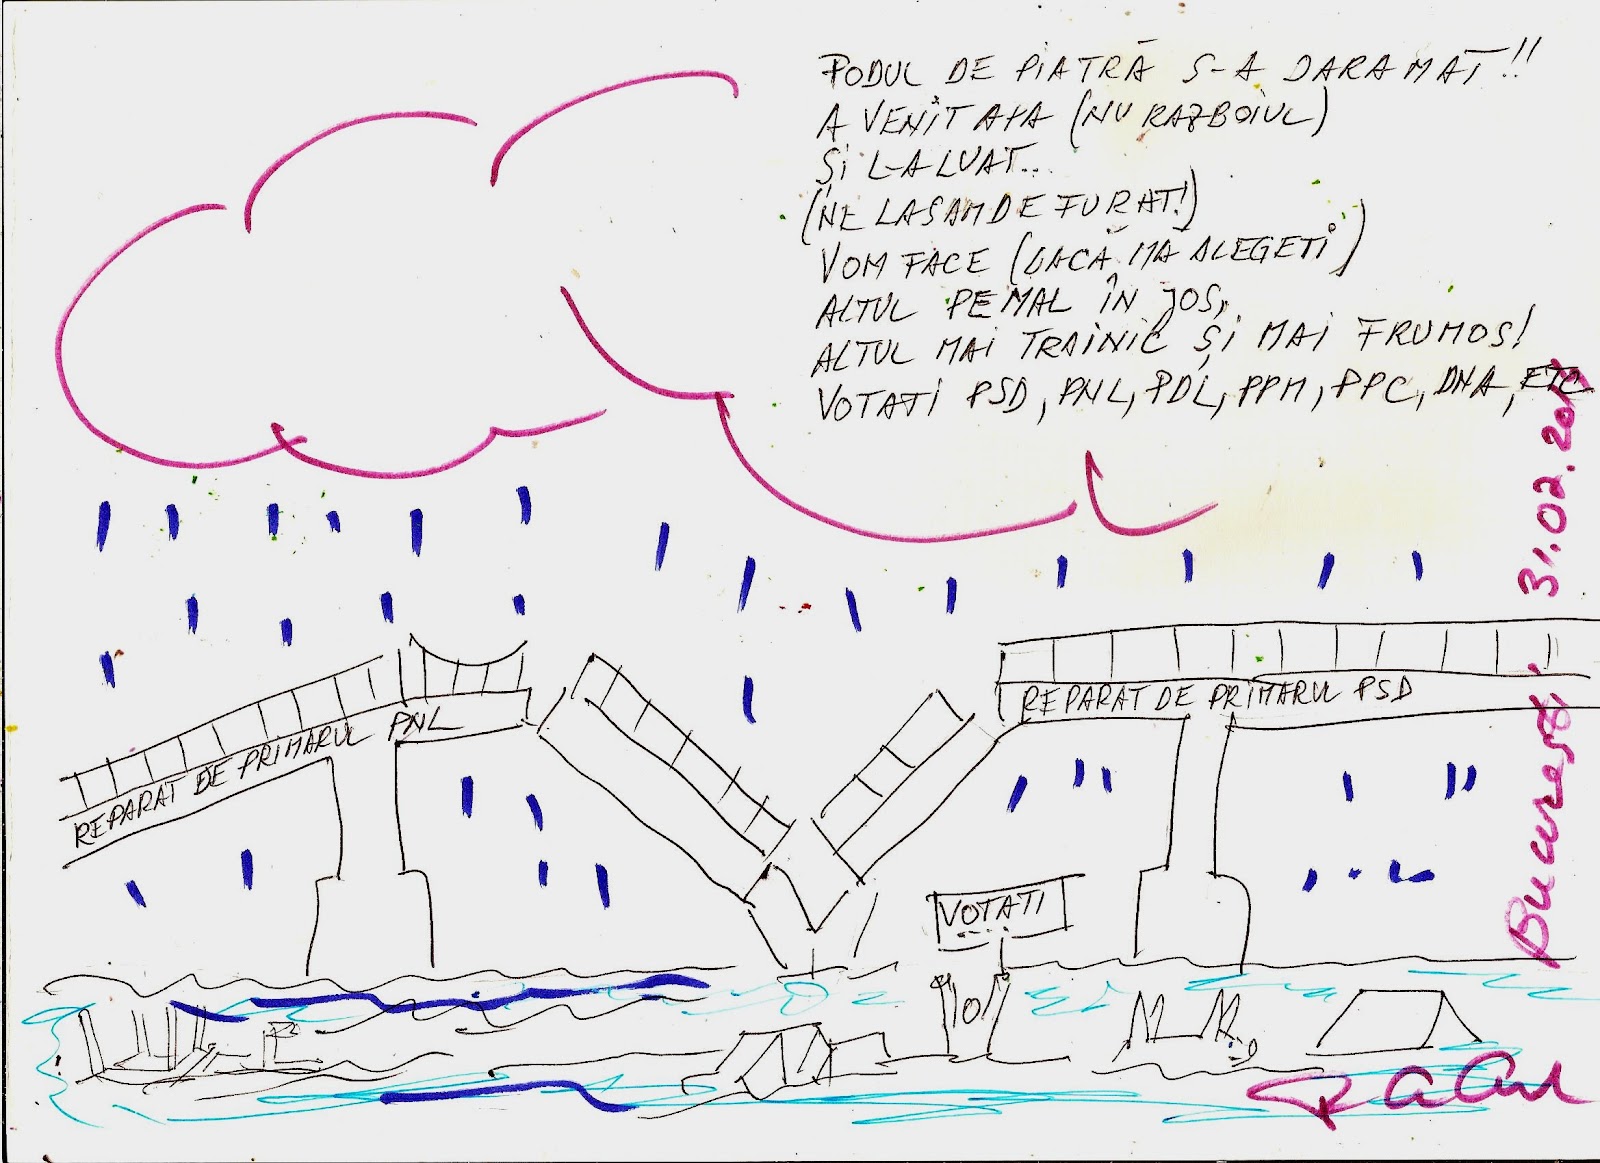 PODUL DE PIATRĂ S-A DARAMAT!!
A VENIT APA (NU RAZBOIUL)
ȘI L-A LUAT...
(NE LASAM DE FURAT!)
VOM FACE (DACĂ MĂ ALEGETI)
ALTUL PE MAL ÎN JOS,
ALTUL MAI TRAINIC ȘI MAI FRUMOS!
VOTAȚI PSD, PNL, PDL, PPM, PPC, DNA, ETC
REPARAT DE PRIMARUL PNL
REPARAT DE PRIMARUL PSD
VOTATI
București 31.02.